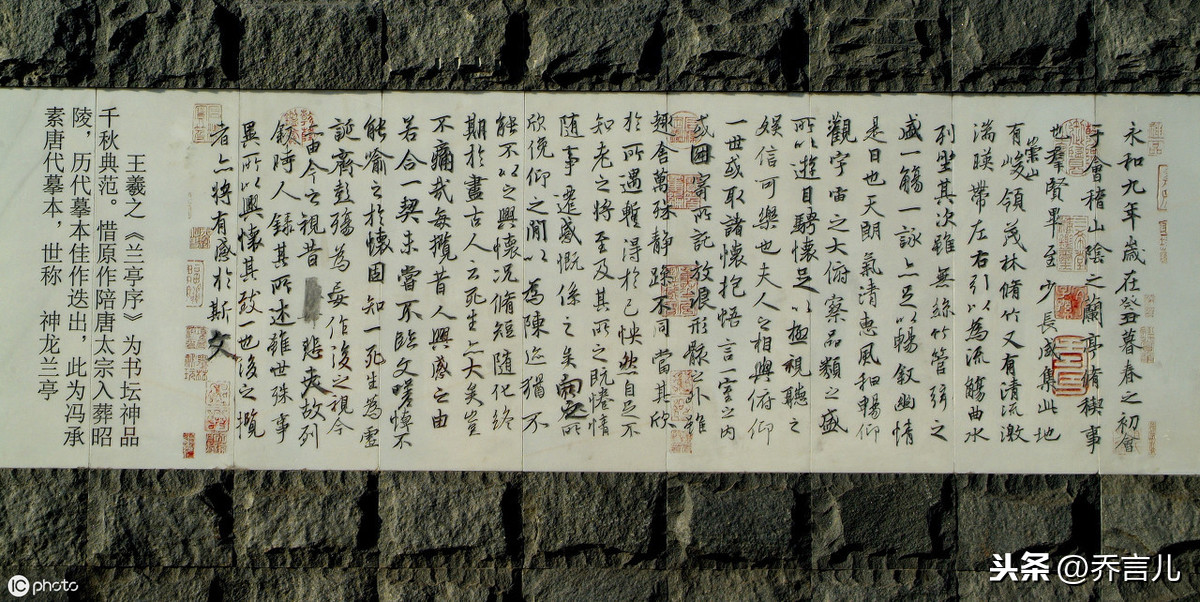 永和九年歲在癸丑暮春之初會
于會稽山陰之蘭亭脩稧事
也羣賢畢至少長咸集此地
有崇山峻領茂林脩竹又有清流激
湍暎帶左右引以為流觴曲水
列坐其次雖無絲竹管弦之
盛一觴一詠亦足以暢敘幽情
是日也天朗氣清惠風和暢仰
觀宇宙之大俯察品類之盛
所以遊目騁懷足以極視聽之
娛信可樂也夫人之相與俯仰
一世或取諸懷抱悟言一室之內
或因寄所託放浪形骸之外雖
趣舍萬殊靜躁不同當其欣
於所遇蹔得於己怏然自足不
知老之將至及其所之既惓情
隨事遷感慨係之矣向之所
欣俛仰之閒以為陳迹猶不
能不以之興懷況脩短隨化終
期於盡古人云死生亦大矣豈
不痛哉每攬昔人興感之由
若合一契未嘗不臨文嗟悼不
能喻之於懷固知一死生為虛
誕齊彭殤為妄作後之視今
亦由今之視昔悲夫故列
敘時人錄其所述雖世殊事
異所以興懷其致一也後之攬
者亦將有感於斯文
王羲之《兰亭序》为书坛神品
千秋典范。惜原作陪唐太宗入葬昭
陵，历代摹本佳作迭出，此为冯承
素唐代摹本，世称 神龙兰亭
IC photo
头条 @乔言儿